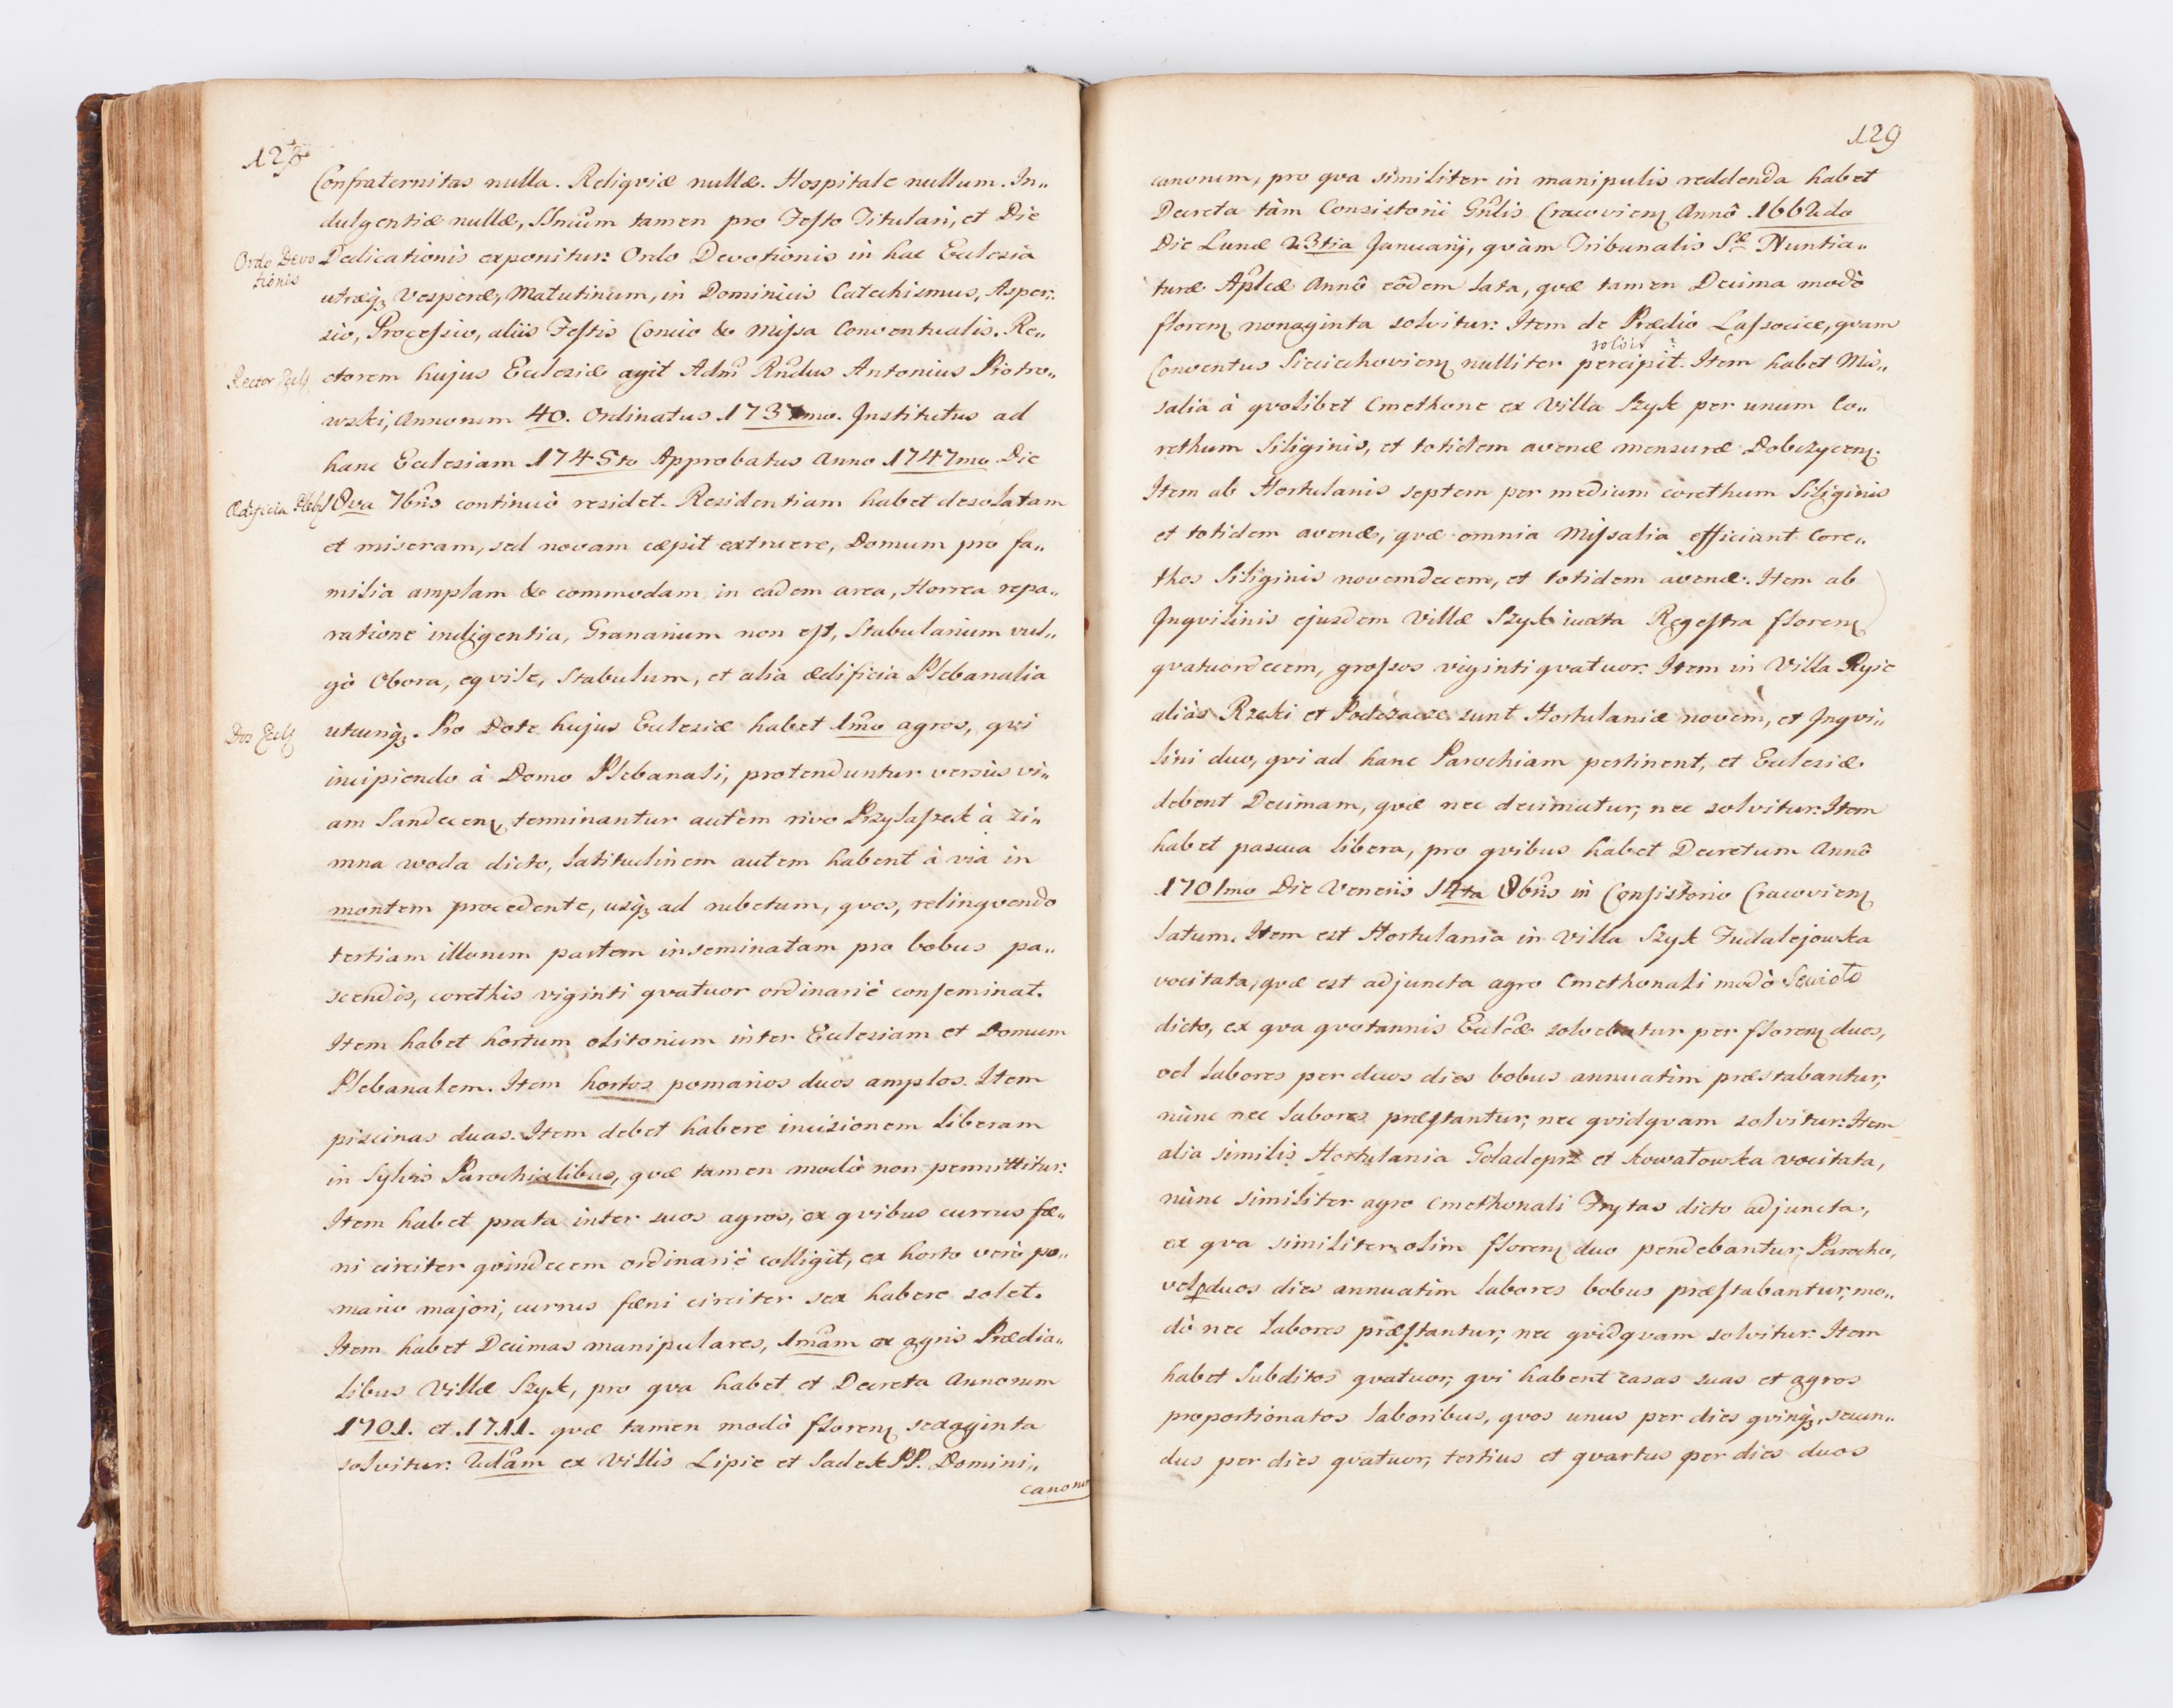 128
Confraternitas nulla. Reliqviæ nullæ. Hospitale nullum. In„
dulgentiæ nullæ, SSmũm tamen pro Festo Titulari, et Die
Ordo Devo
tionis
Dedicationis exponitur: Ordo Devotionis in hac Ecclesia
utræq3 Vesperæ, Matutinum, in Dominicis Catechismus, Asper„
sio, Processio, aliis Festis Concio & Missa Conventualis. Re„
Rector Eccl
ctorem hujus Ecclesiæ agit Adm̃ Rñdus Antonius Piotro„
wski, Annorum 40. Ordinatus 1737mo. Institutus ad
hanc Ecclesiam 1745to Approbatus Anno 1747mo Die
Ædificia Pleb
18va 7bris continuò residet. Residentiam habet desolatam
et miseram, sed novam cæpit extruere, Domum pro fa„
milia amplam & commodam in eadem area, Horrea repa„
ratione indigentia, Granarium non est, Stabularium vul„
gò Obora, eqvile, Stabulum, et alia ædificia Plebanalia
Dos Eccl
utcunq3. Pro Dote hujus Ecclesiæ habet 1mo agros, qvi
incipiendo à Domo Plebanali, protenduntur versùs vi„
am Sandecen, terminantur autem rivo Przylaszek à Zi„
mna woda dicto, latitudinem autem habent à via in
montem procedente, usq3 ad rubetum, qvos, relinqvendo
tertiam illorum partem inseminatam pro bobus pa„
scendis, corethis viginti qvatuor ordinariè conseminat.
Item habet hortum olitorium inter Ecclesiam et Domum
Plebanalem. Item hortos pomarios duos amplos. Item
piscinas duas. Item debet habere incisionem liberam
in Sylvis Parochialibus, qvæ tamen modò non permittitur:
Item habet prata inter suos agros, ex qvibus currus fæ„
ni circiter qvindecem ordinariè colligit, ex horto verò po„
mario majori, currus fæni circiter sex habere solet.
Item habet Decimas manipulares, 1mam ex agris Prædia„
libus Villæ Szyk, pro qva habet et Decreta Annorum
1701. et 1711. qvæ tamen modò floren sexaginta
solvitur: 2dam ex Villis Lipie et Sadek PP. Domini„
canorum
129
canorum, pro qva similiter in manipulis reddenda habet
Decreta tàm Consistorii Gñlis Cracovien Annô 1662do
Die Lunæ 23tia Januarij, qvàm Tribunalis Sæ Nuntia„
turæ Aplcæ Annô eôdem lata, qvæ tamen Decima modò
floren nonaginta solvitur: Item de Prædio Lassocice, qvam
solvit
Conventus Sieciechovien nulliter percipit. Item habet Mis„
salia à qvolibet Cmethone ex Villa Szyk per unum Co„
rethum Siliginis, et totidem avenæ mensuræ Dobczycen.
Item ab Hortulanis septem per medium corethum Siliginis
et totidem avenæ, qvæ omnia Missalia efficiunt Core„
thos Siliginis novemdecem, et totidem avenæ. Item ab
Inqvilinis ejusdem Villæ Szyk iuxta Regestra floren
qvatuordecem, grossos viginti qvatuor. Item in Villa Ryie
aliàs Rzeki et Podczacze sunt Hortulaniæ novem, et Inqvi„
lini duo, qvi ad hanc Parochiam pertinent, et Ecclesiæ
debent Decimam, qvæ nec decimatur, nec solvitur: Item
habet pascua libera, pro qvibus habet Decretum Annô
1701mo Die Veneris 14ta 8bris in Consistorio Cracovien
latum. Item est Hortulania in Villa Szyk Fudalejowska
vocitata, qvæ est adjuncta agro Cmethonali modò
dicto, ex qva qvotannis Ecclæ solvebatur per floren duos,
vel labores per duos dies bobus annuatim præstabantur,
nùnc nec labores præstantur, nec qvidqvam solvitur: Item
alia similis Hortulania Goladeprz et Kowalowska vocitata,
nùnc similiter agro Cmethonali Frytas dicto adjuncta,
ex qva similiter olim floren duo pendebantur, Parocho,
vel p duos dies annuatim labores bobus præstabantur, mo„
dò nec labores præstantur, nec qvidqvam solvitur. Item
habet Subditos qvatuor, qvi habent casas suas et agros
proportionatos laboribus, qvos unus per dies qvinq3, secun„
dus per dies qvatuor, tertius et qvartus per dies duos